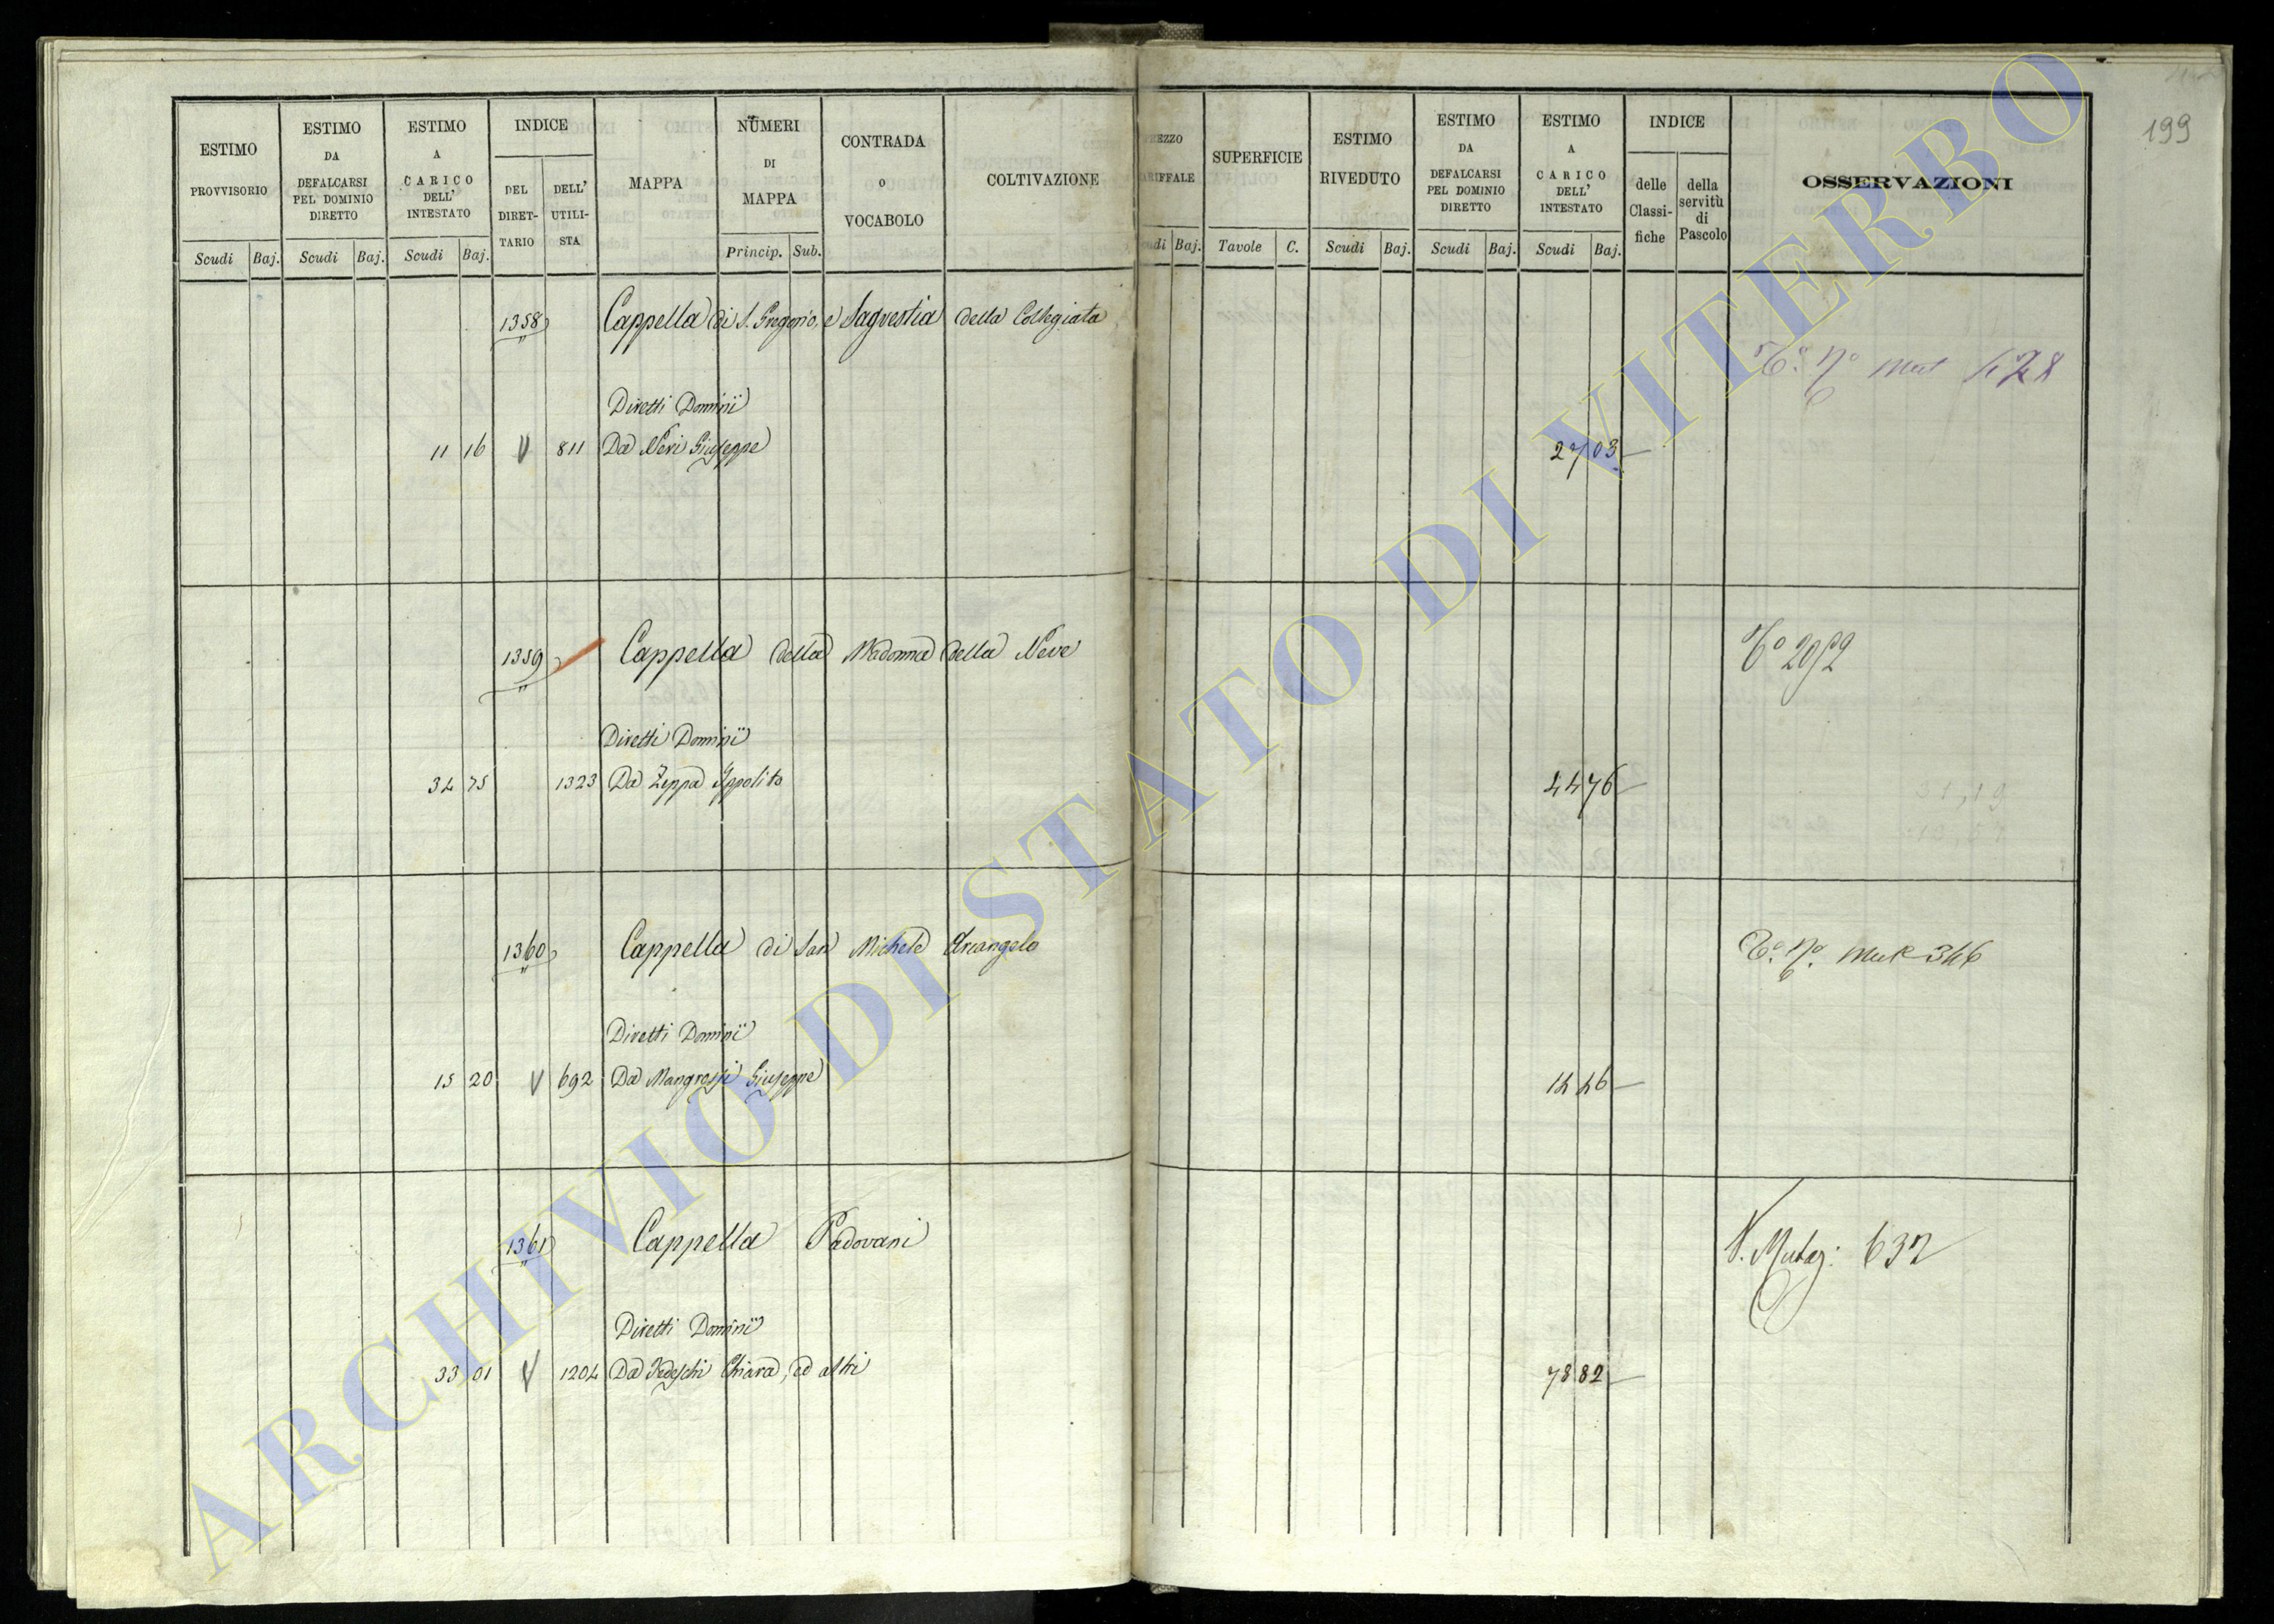 199
ESTIMO PROVVISORIO
ESTIMO DA DEFALCARSI PEL DOMINIO DIRETTO
ESTIMO A CARICO DELL' INTESTATO
INDICE
DEL DIRET-TARIO
DELL' UTILI-STA
MAPPA
NUMERI DI MAPPA
CONTRADA O VOCABOLO
COLTIVAZIONE
SUPERFICIE
ESTIMO RIVEDUTO
ESTIMO DA DEFALCARSI PEL DOMINIO DIRETTO
ESTIMO A CARICO DELL' INTESTATO
INDICE
delle Classi-fiche
della servitù di Pascolo
OSSERVAZIONI
Scudi Baj. Scudi Baj. Scudi Baj. Princip. Sub. Baj. Tavole C. Scudi Baj. Scudi Baj. Scudi Baj.
1358 Cappella di S. Gregorio, e Sagrestia della Collegiata
Diretti Dominii
11 16 V 811 Da Neri Giuseppe 27 03
1359 Cappella della Madonna della Neve
Diretti Dominii
34 75 1323 Da Zeppa Ippolito 44 76
1360 Cappella di San Michele Arcangelo
Diretti Dominii
15 20 V 692 Da Mangrossi Giuseppe 14 46
1361 Cappella Padovani V. Mutaz: 632
Diretti Dominii
33 01 V 1204 Da Tedeschi Chiara, ed altri 78 82
ARCHIVIO DI STATO DI VITERBO